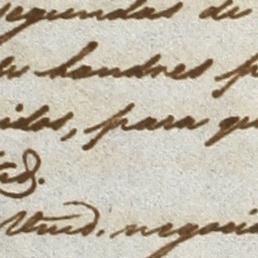 segundas de
Londres p
idos, para qu
Vmd. negocio